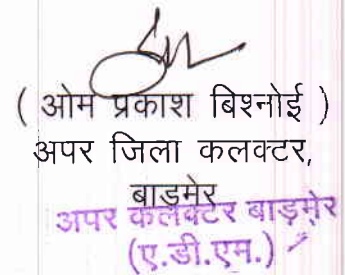 ( ओम प्रकाश बिश्नोई )
अपर जिला कलक्टर,
बाडमेर
अपर कलक्टर बाड़मेर
(ए.डी.एम.)